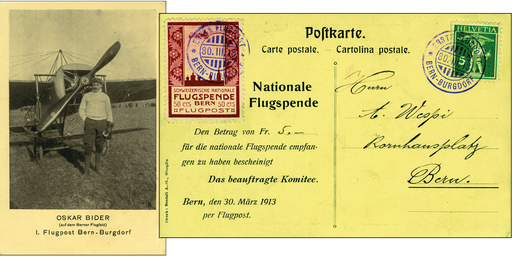 OSKAR BIDER
(auf dem Berner Flugfeld)
I. Flugpost Bern-Burgdorf
SCHWEIZERISCHE NATIONALE
FLUGSPENDE
50 cts BERN 50 cts
FLUGPOST
Postkarte.
Carte postale. – Cartolina postale.
HELVETIA
5
BERN-BURGDORF
Nationale
Flugspende
Den Betrag von Fr. 5.—
für die nationale Flugspende empfan-
gen zu haben bescheinigt
Das beauftragte Komitee.
Bern, den 30. März 1913
per Flugpost.
Herrn
A. Wespi
Kornhausplatz
Bern.